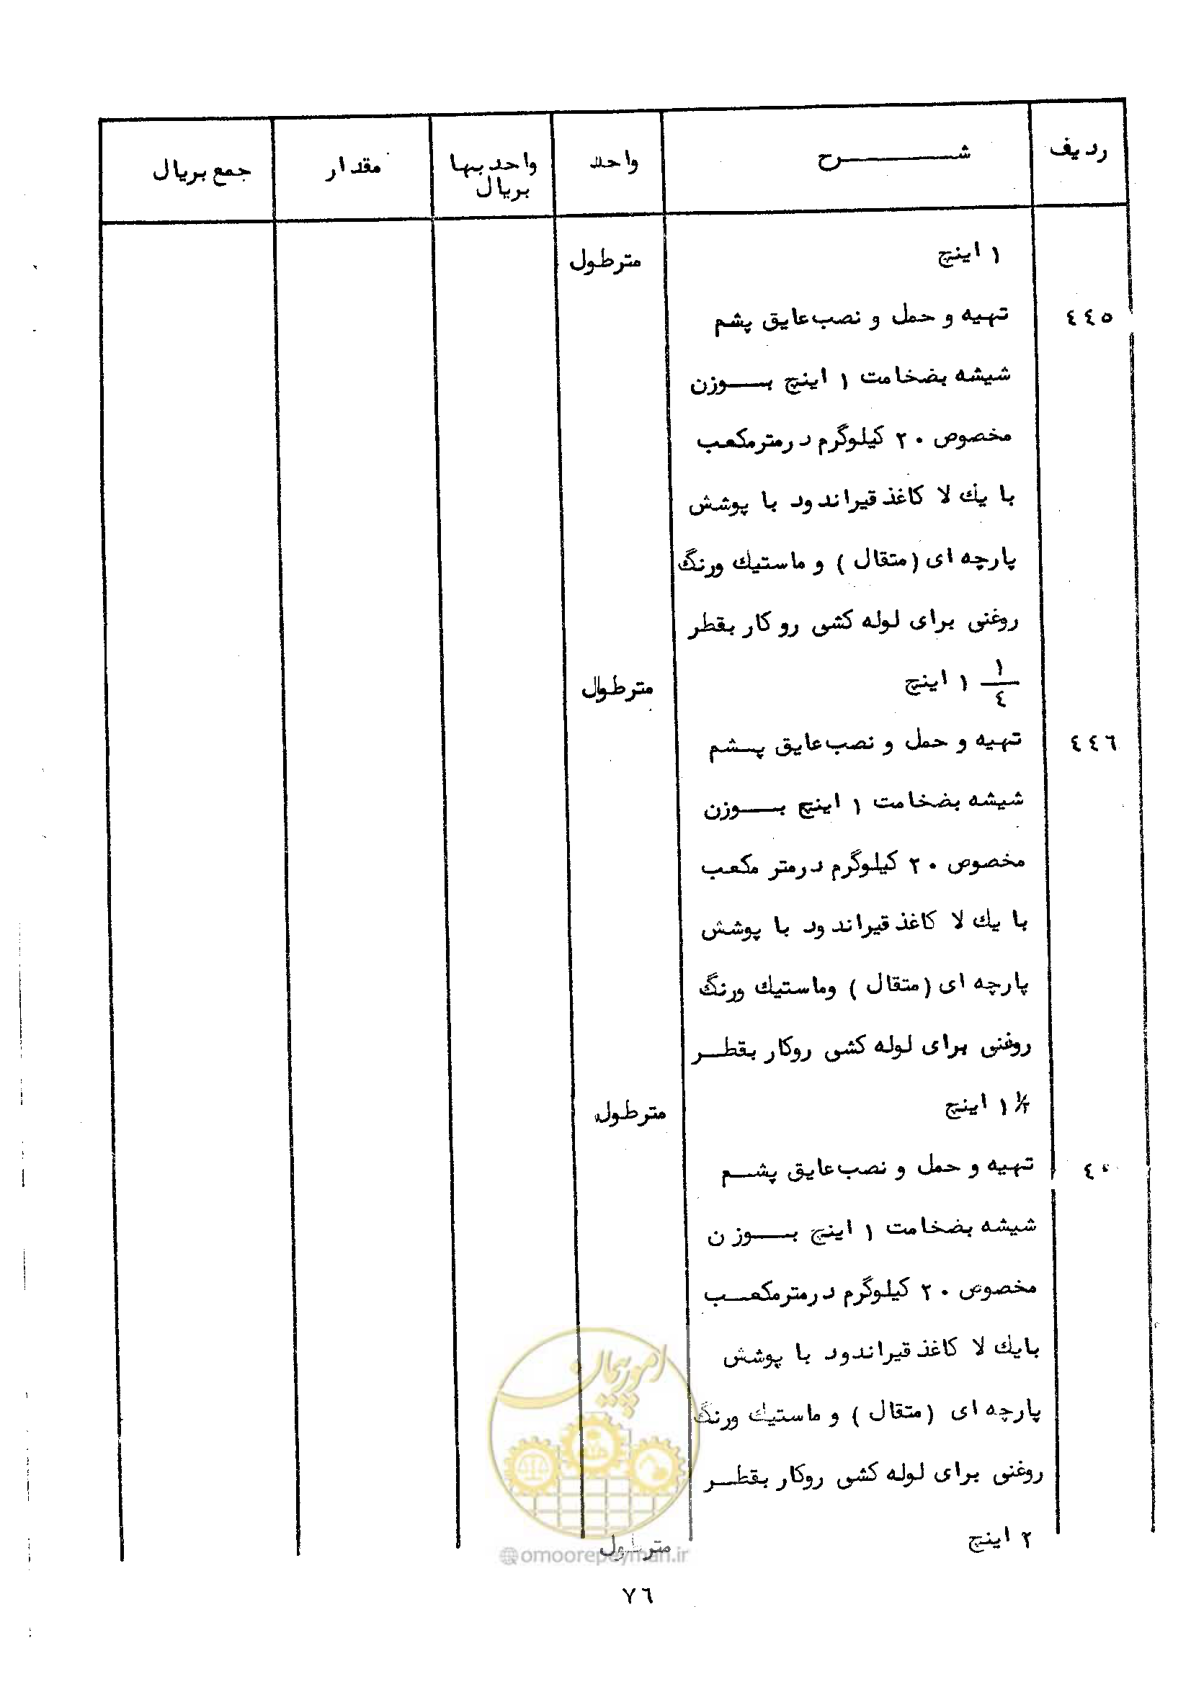 ردیف شـــــرح واحد واحد بها بریال مقدار جمع بریال
۱ اینچ مترطول
٤٤٥ تهیه و حمل و نصب عایق پشم
شیشه بضخامت ۱ اینچ بــوزن
مخصوص ۲۰ کیلوگرم درمترمکعب
با یك لا کاغذ قیراندود با پوشش
پارچه ای (متقال) و ماستیك ورنگ
روغنی برای لوله کشی روکار بقطر
۱ ۱/٤ اینچ مترطول
٤٤٦ تهیه و حمل و نصب عایق پــشم
شیشه بضخامت ۱ اینچ بــوزن
مخصوص ۲۰ کیلوگرم درمتر مکعب
با یك لا کاغذ قیراندود با پوشش
پارچه ای (متقال) وماستیك ورنگ
روغنی برای لوله کشی روکار بقطــر
۱ ۱/۲ اینچ مترطول
تهیه و حمل و نصب عایق پشــم
شیشه بضخامت ۱ اینچ بــوزن
مخصوص ۲۰ کیلوگرم درمترمکعــب
بایك لا کاغذ قیراندود با پوشش
پارچه ای (متقال) و ماستیك ورنگ
روغنی برای لوله کشی روکار بقطــر
۲ اینچ مترطول
امور پیمان
@omoorepeyman.ir
۷٦